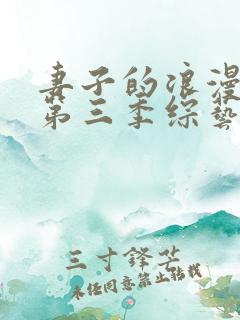 妻子的浪漫
第三季综艺
三寸锋芒
未经同意禁止转载